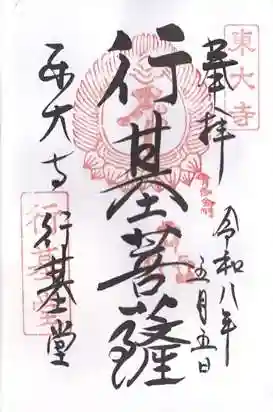 東大寺
奉拝
令和八年
五月五日
行基菩薩
東大寺
行基堂
行基堂